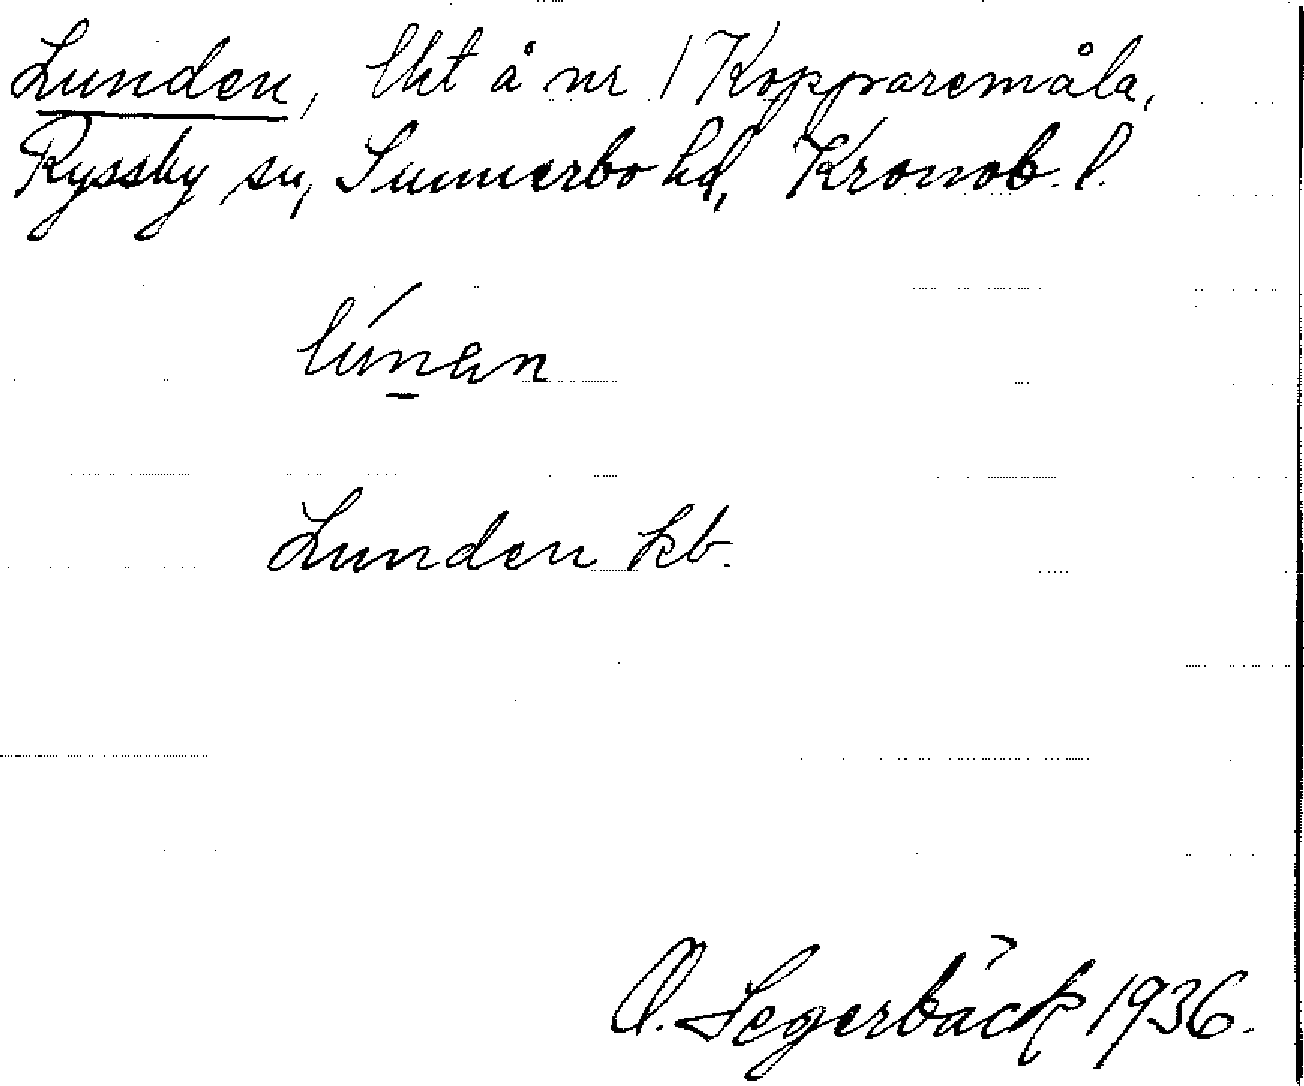 Lunden, lht å nr 1 Kopparemåla,
Ryssby sn, Sunnerbo hd, Kronob. l.
Lunden kb.
O. Segerbäck 1936.